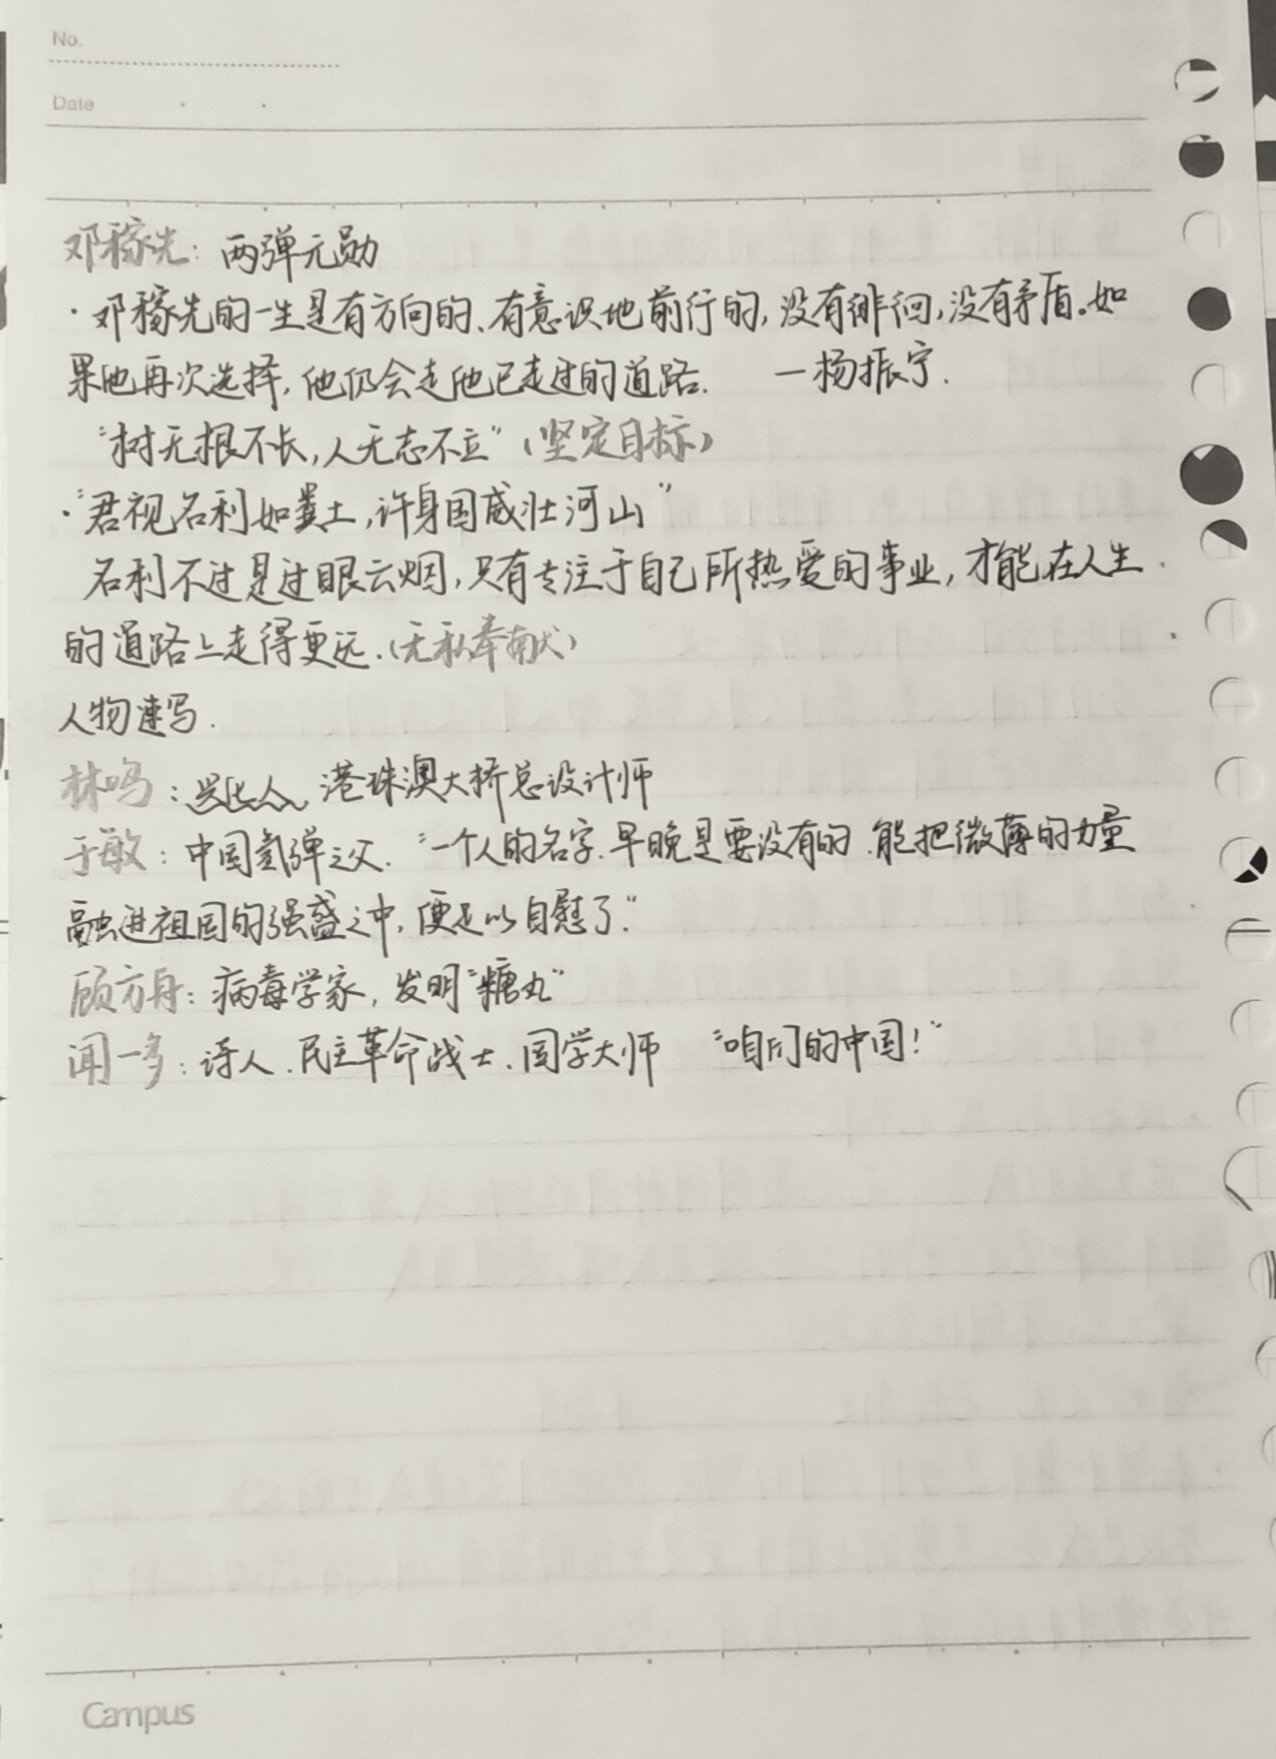 No.
Date
邓稼先：两弹元勋
·邓稼先的一生是有方向的、有意识地前行的，没有徘徊，没有矛盾。如
果他再次选择，他仍会走他已走过的道路. —杨振宁.
“树无根不长，人无志不立”（坚定目标）
·“君视名利如粪土，许身国威壮河山”
名利不过是过眼云烟，只有专注于自己所热爱的事业，才能在人生
的道路上走得更远.（无私奉献）
人物速写.
林鸣： 港珠澳大桥总设计师
于敏：中国氢弹之父. “一个人的名字.早晚是要没有的.能把微薄的力量
融进祖国的强盛之中，便足以自慰了.”
顾方舟：病毒学家，发明“糖丸”
闻一多：诗人.民主革命战士.国学大师 “咱们的中国！”
Campus